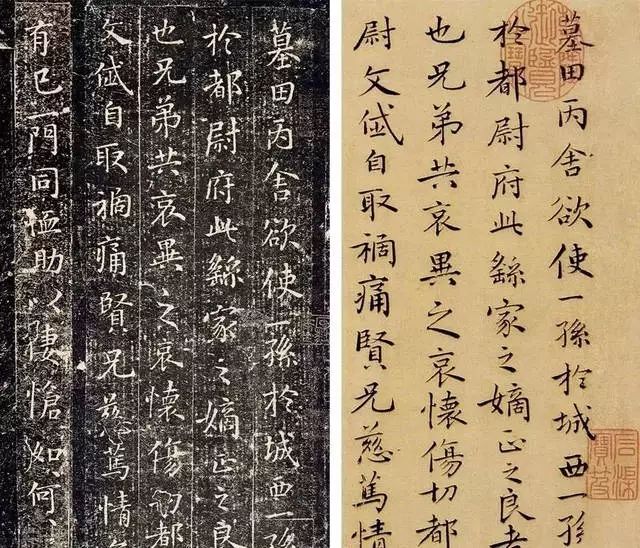 墓田丙舍欲使一孫扵城西一孫
扵都尉府此繇家之嫡正之良
也兄弟共哀異之哀懷傷切都
文岱自取禍痛賢兄慈篤情
有已一門同恤助以悽愴如何
墓田丙舍欲使一孫扵城西一孫
扵都尉府此繇家之嫡正之良者
也兄弟共哀異之哀懷傷切都
尉文岱自取禍痛賢兄慈篤情